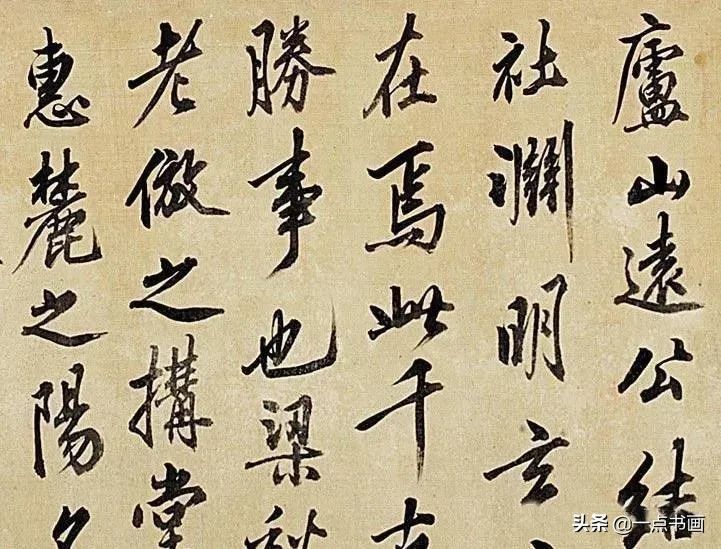 廬山遠公結
社淵明玄
在焉此千古
勝事也梁秋
老倣之搆堂
惠麓之陽
头条 @一点书画